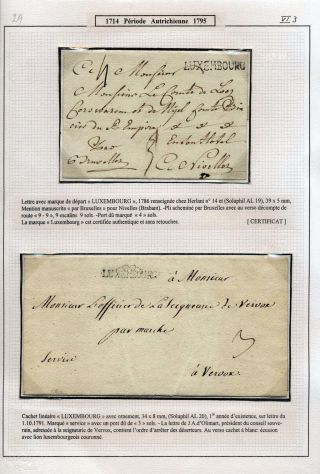 29
1714 Période Autrichienne 1795
VI.3
LUXEMBOURG
A Monsieur
Monsieur Le Comte de Looz
Corswarem et de Nyel Comte
du St Empire
Pero
Bruxelles
En son Hotel
A Nivelles
Lettre avec marque de départ « LUXEMBOURG », 1786 renseignée chez Herlant n° 14 et (Soluphil AL 19), 39 x 5 mm,
Mention manuscrite « par Bruxelles » pour Nivelles (Brabant). -Pli acheminé par Bruxelles avec au verso décompte de
route « 9 - 9 », 9 escalins 9 sols. -Port dû marqué « 4 » sols.
La marque « Luxembourg » est certifiée authentique et sans retouches. [ CERTIFICAT ]
à Monsieur
Monsieur l'officier de La seigneurie de Vervox
par marche
Service
3
à Vervox
Cachet linéaire « LUXEMBOURG » avec ornement, 34 x 8 mm, (Soluphil AL 20), 1° année d'existence, sur lettre du
1.10.1791. Marqué « service » avec un port dû de « 3 » sols. - La lettre de J.A d'Olimart, président du conseil souve-
rain, adressée à la seigneurie de Vervox, contient l'ordre d'arrêter des déserteurs. Au verso cachet à blanc: écusson
avec lion luxembourgeois couronné.